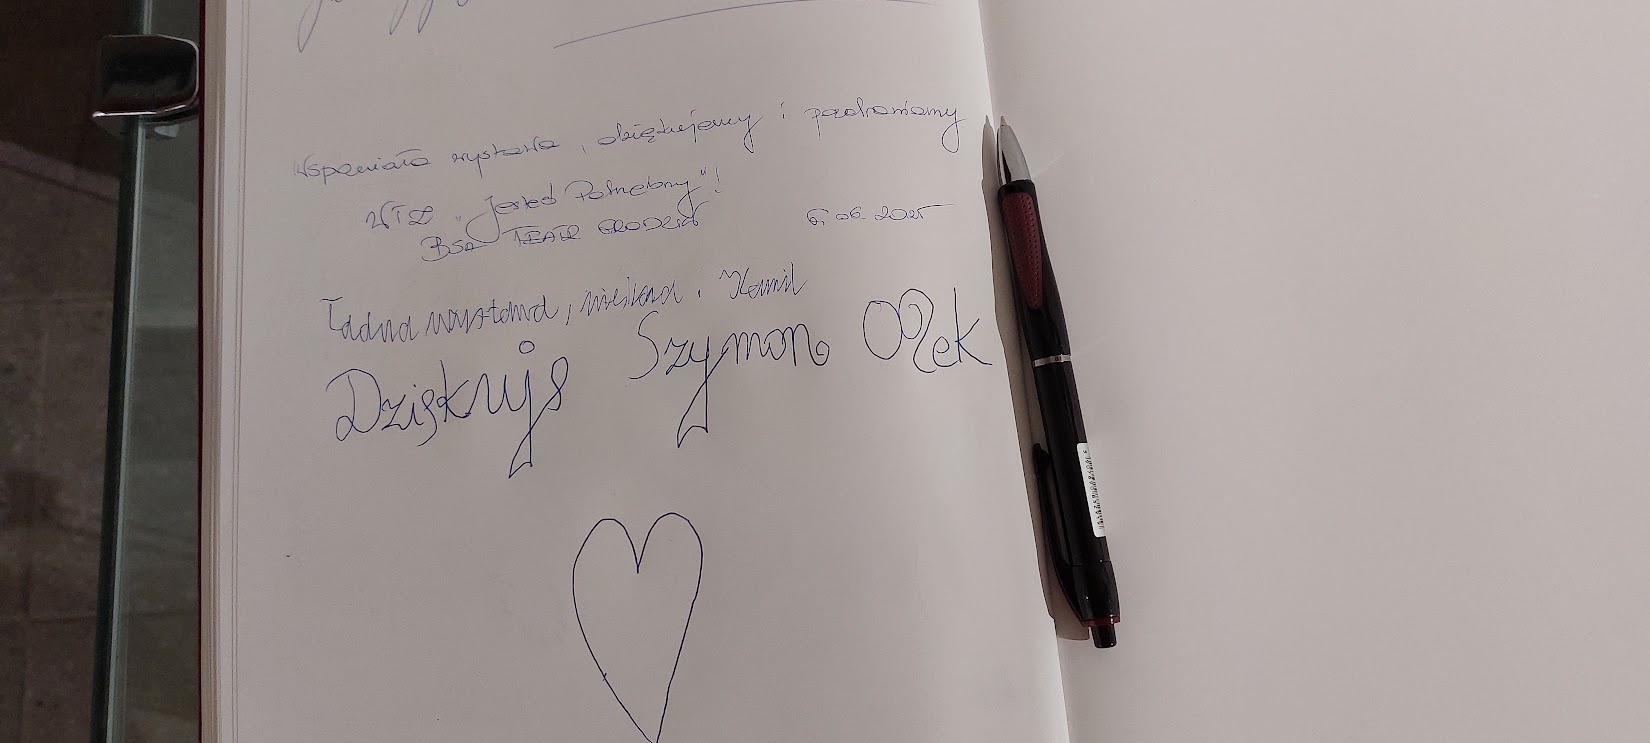 Wspaniała wystawa, dziękujemy i pozdrawiamy
WTZ "Jesteś Potrzebny"!
BSA TEATR GRODZKI 6.06.2025
Ładna wystawa, . Kamil
Dziękuję Szymon